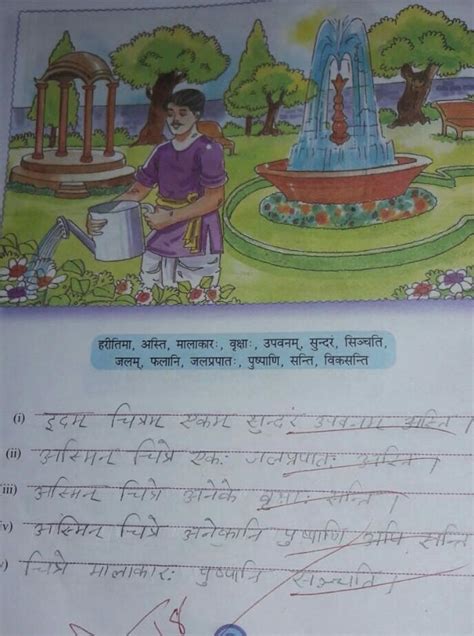 हरीतिमा, अस्ति, मालाकारः, वृक्षाः, उपवनम्, सुन्दरं, सिञ्चति,
जलम्, फलानि, जलप्रपातः, पुष्पाणि, सन्ति, विकसन्ति
(i) इदम् चित्रम् एकम् सुन्दरं उपवनम् अस्ति ।
(ii) अस्मिन् चित्रे एकः जलप्रपातः अस्ति ।
iii) अस्मिन् चित्रे अनेके वृक्षाः सन्ति ।
iv) अस्मिन् चित्रे अनेकानि पुष्पाणि अपि सन्ति
) चित्रे मालाकारः पुष्पानि सिञ्चति ।